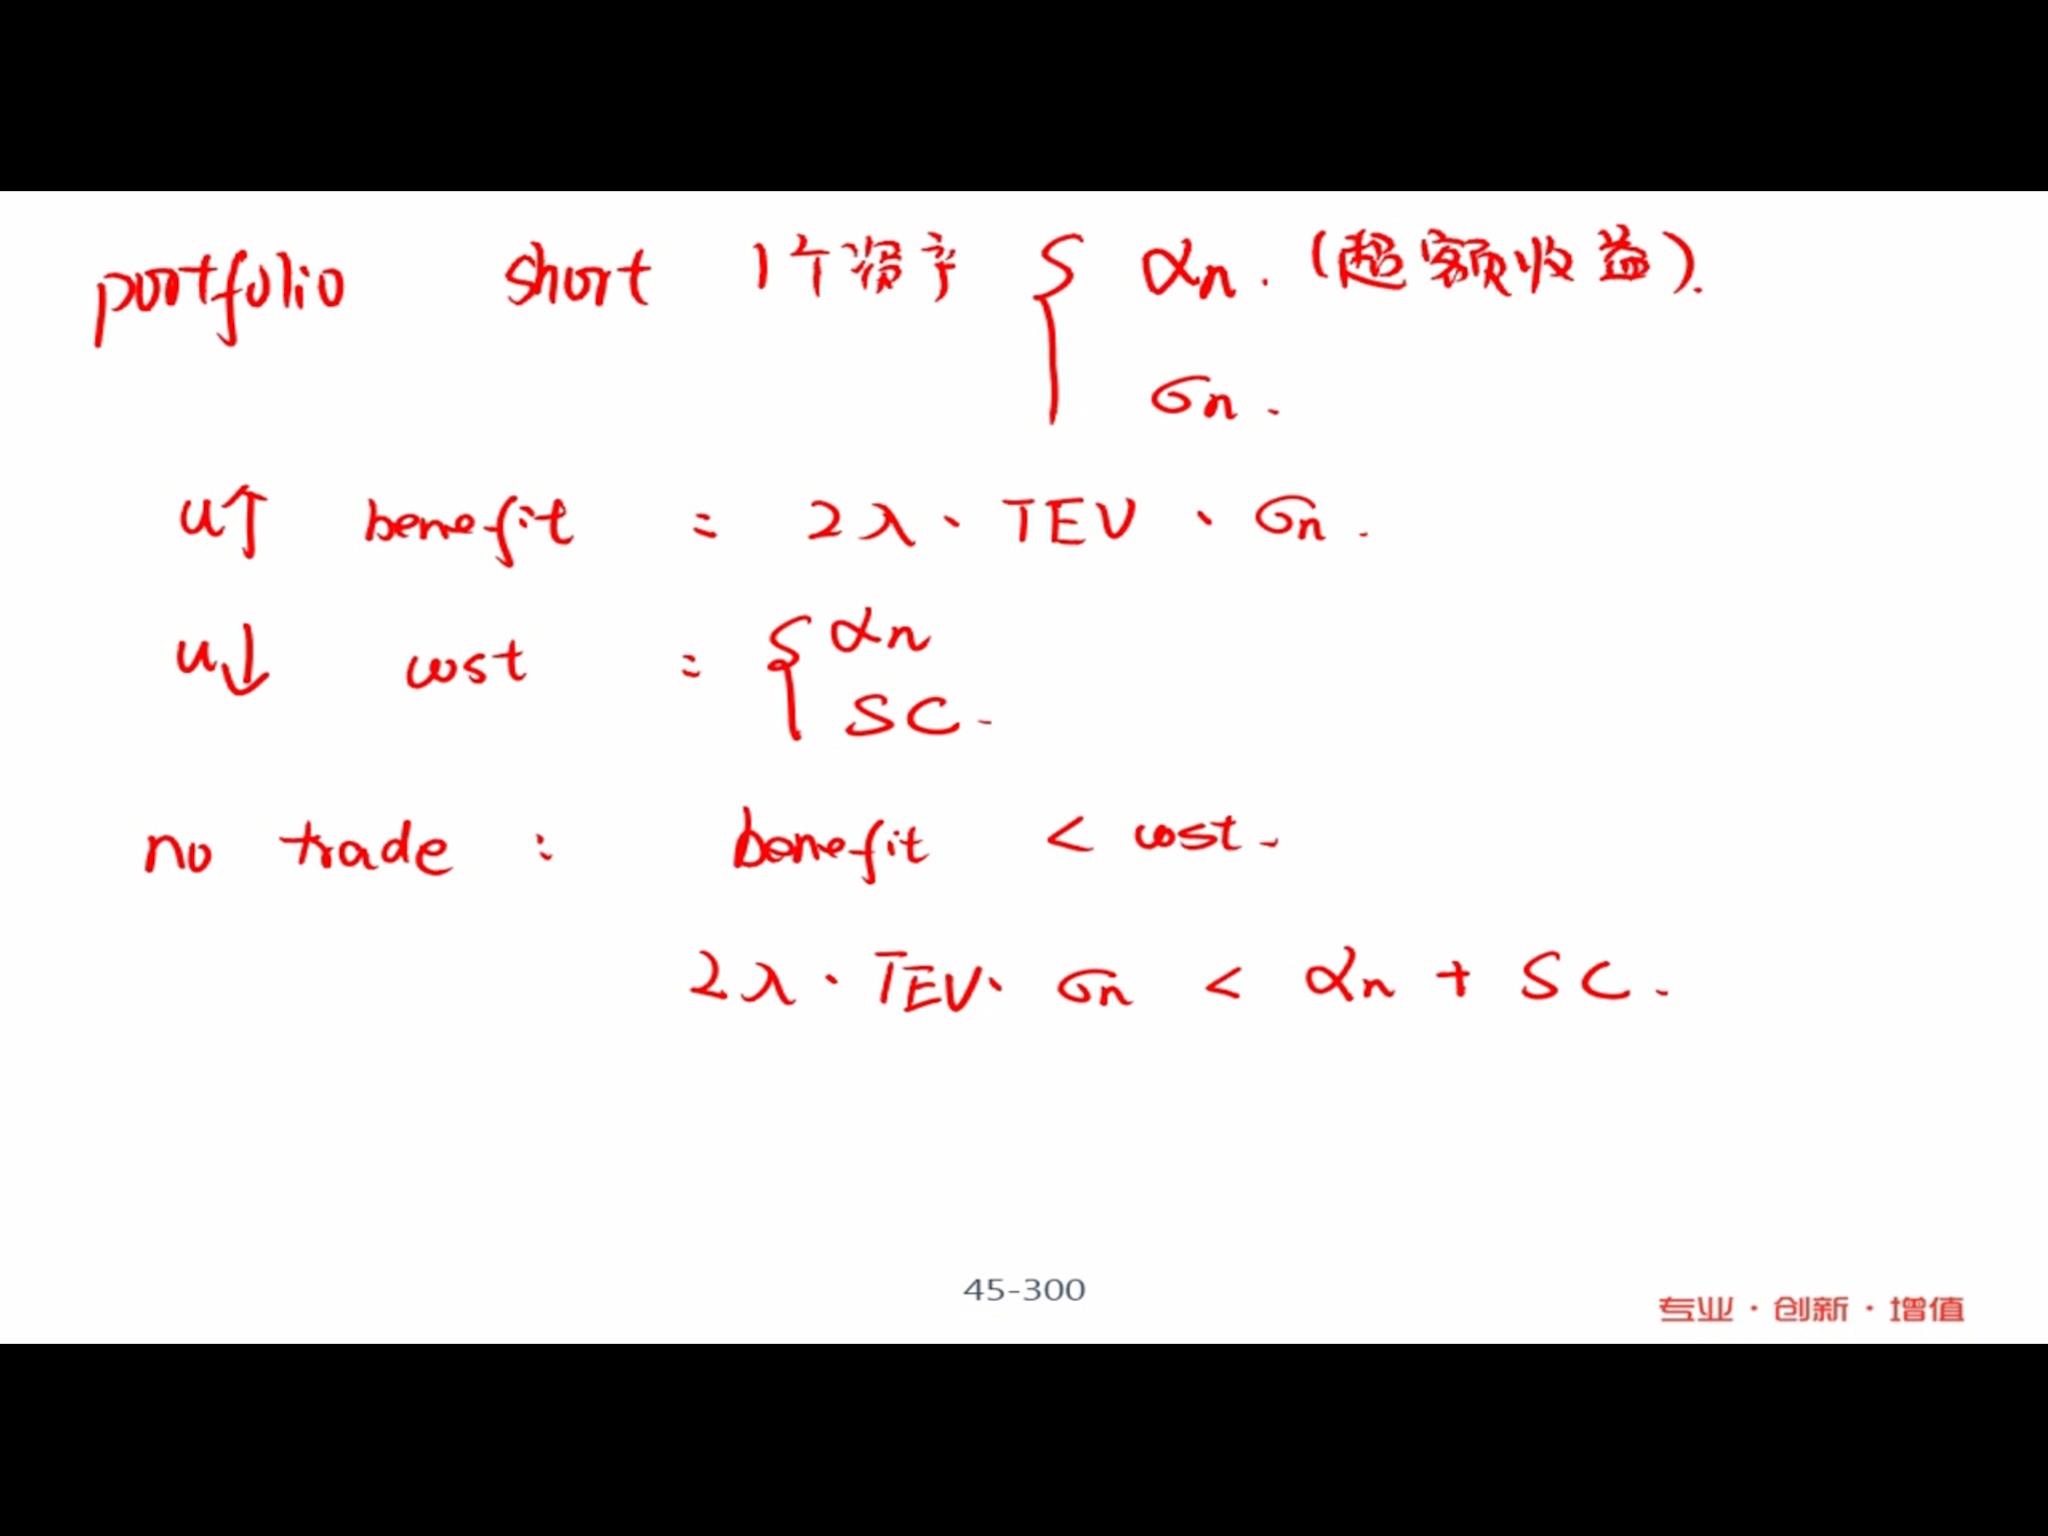 portfolio short 1个资产 { αn. (超额收益).
σn.
u↑ benefit = 2λ · TEV · σn.
u↓ cost = { αn
SC.
no trade : benefit < cost.
2λ · TEV · σn < αn + SC.
45-300
专业·创新·增值